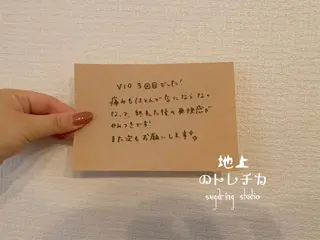 VIO 3回目でした!
痛みもほとんど気にならなく
なって、終わった後の爽快感が
やみつきです!
また次もお願いします。
地上
のトレチカ
sugaring studio